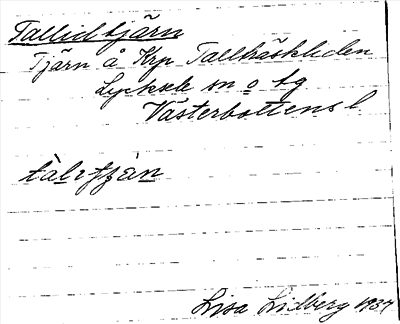 Tallidtjärn
Tjärn å Krp Tallträskliden
Lycksele sn o tg
Västerbottens l.
Lisa Lidberg 1934